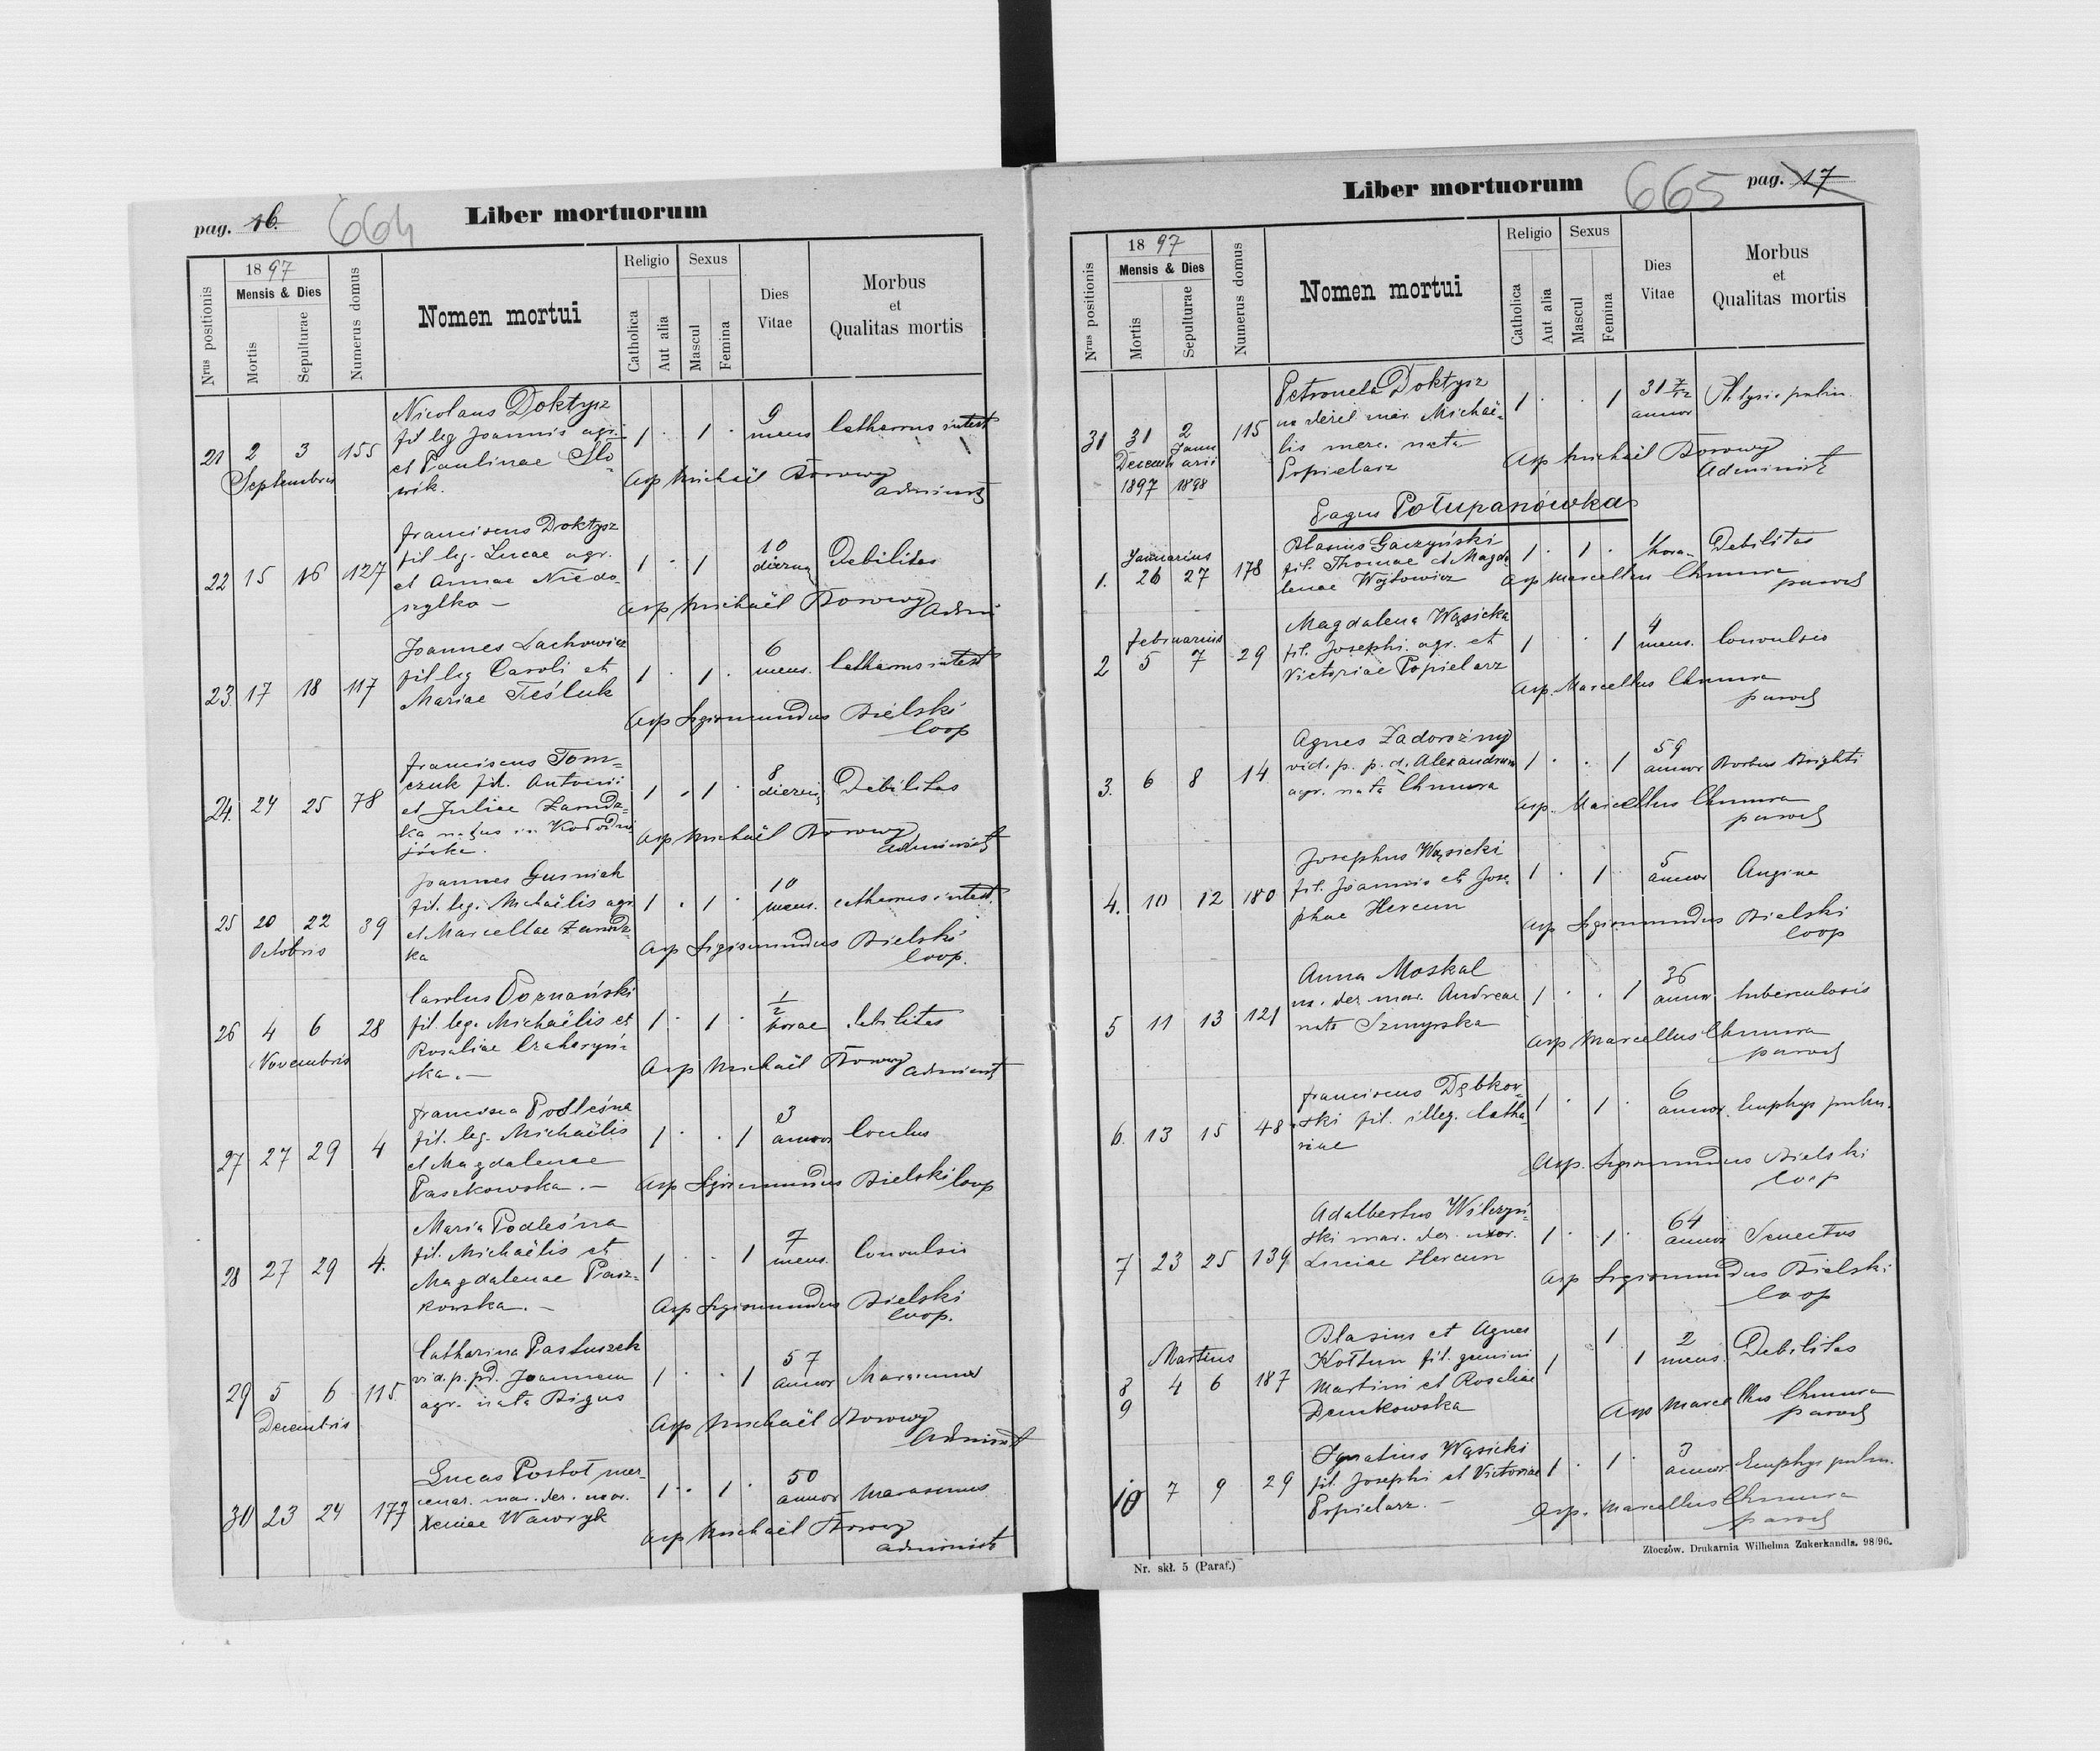 pag. 16. 664 Liber mortuorum
Nrus positionis
1897
Mensis & Dies
Mortis
Sepulturae
Numerus domus
Nomen mortui
Religio
Catholica
Aut alia
Sexus
Mascul
Femina
Dies
Vitae
Morbus
et
Qualitas mortis
21 2 3 155
Septembris
Nicolaus Doktysz
fil leg Joannis agri.
et Paulinae Sło-
wik.
1 . 1 . 9
mens
Catharrus intest
Asp Michaël Borowy
administ
22 15 16 127
Franciscus Doktysz
fil leg. Lucae agr.
et Annae Niedo-
szytko –
1 . 1 10
dierum
Debilitas
Asp Michaël Borowy Admi
23. 17 18 117
Joannes Lachowicz
fil leg Caroli et
Mariae Teśluk
1 . 1 . 6
mens.
Catharrus intest
Asp Sigismundus Bielski
Coop
24. 24 25 78
Franciscus Tom=
czuk fil. Antonii
et Juliae
ka natus in
jówka.
1 . 1 . 8
dierum
Debilitas
Asp Michaël Borowy
administ
25 20 22 39
Octobris
Joannes Gusniak
fil. leg. Michaëlis agr
et Marcellae
ka
1 . 1 . 10
mens.
Catharrus intest.
Asp Sigismundus Bielski
Coop.
26 4 6 28
Novembris
Carolus Poznański
fil. leg. Michaëlis et
Rosaliae Czaharyń-
ska. –
1 . 1 . 1/2
horae
debilitas
Asp Michaël Borowy administ
27 27 29 4
Francisca Podleśna
fil. leg. Michaëlis
et Magdalenae
Paszkowska. –
1 . . 1 3
annor
Asp Sigismundus Bielski Coop
28 27 29 4.
Maria Podleśna
fil. Michaëlis et
Magdalenae Pasz-
kowska. –
1 . . 1 7
mens.
Convulsio
Asp Sigismundus Bielski
Coop.
29 5 6 115.
Decembris
Catharina Pastuszek
vid. p. pd. Joannem
agr. nata Bigus
1 . . 1 57
annor
Marasmus
Asp Michaël Borowy
Administ
30 23 24 177
Lucas Postoł mer-
cenar. mar. der. uxor.
Xeniae Wawryk
1 . 1 . 50
annor
marasmus
Asp Michaël Borowy
administ
Liber mortuorum 665 pag. 17
Nrus positionis
1897
Mensis & Dies
Mortis
Sepulturae
Numerus domus
Nomen mortui
Religio
Catholica
Aut alia
Sexus
Mascul
Femina
Dies
Vitae
Morbus
et
Qualitas mortis
31 31 2 115
Decemb Janu
arii
1897 1898
Petronela Doktysz
ux derel mar. Michaë-
lis merc. nata
Popielarz
1 . . 1 31 7/12
annor
Phtysis pulm.
Asp Michaël Borowy
Administ
Pagus Połupanówka
Januarius
1. 26 27 178
Blasius Gaczyński
fil. Thomae et Magda
lenae Wojtowicz
1 . 1 . 1 hora
Debilitas
Asp Marcellus Chmura
paroch
Februarius
2 5 7 29
Magdalena Wąsicka
fil. Josephi agr. et
Victoriae Popielarz
1 . 1 4
mens.
Convulsio
Asp. Marcellus Chmura
paroch
3. 6 8 14
Agnes Zadorożny
vid. p. p. d. Alexandrum
agr. nata Chmura
1 . . 1 59
annor
Morbus Brighti
Asp. Marcellus Chmura
paroch
4. 10 12 180
Josephus Wąsicki
fil. Joannis et Jose-
phae Hercun
1 . 1 5
annor
Angina
Asp Sigismundus Bielski
Coop
5 11 13 121
Anna Moskal
ux. der. mar. Andreae
nata Szmyrska
1 . . 1 36
annor
tuberculosis
Asp Marcellus Chmura
paroch
6. 13 15 48
Franciscus Dębkow-
ski fil. illeg. Catha
rinae
1 . 1 . 6
annor.
Emphys pulm.
Asp. Sigismundus Bielski
Coop
7 23 25 139
Adalbertus Wilczyń-
ski mar. der. uxor.
Luciae Hercun
1 . 1 . 64
annor
Senectus
Asp Sigismundus Bielski
Coop
Martius
8 4 6 187
9
Blasius et Agnes
Kołtun fil. gemini
Martini et Rosaliae
Demkowska
1 1 1 2
mens.
Debilitas
Asp Marcellus Chmura
paroch
10 7 9 29
Ignatius Wąsicki
fil. Josephi et Victoriae
Popielarz. –
1 . 1 . 3
annor
Emphys pulm.
Asp. Marcellus Chmura
paroch
Nr. skł. 5 (Paraf.)
Złoczów. Drukarnia Wilhelma Zukerkandla. 98/96.